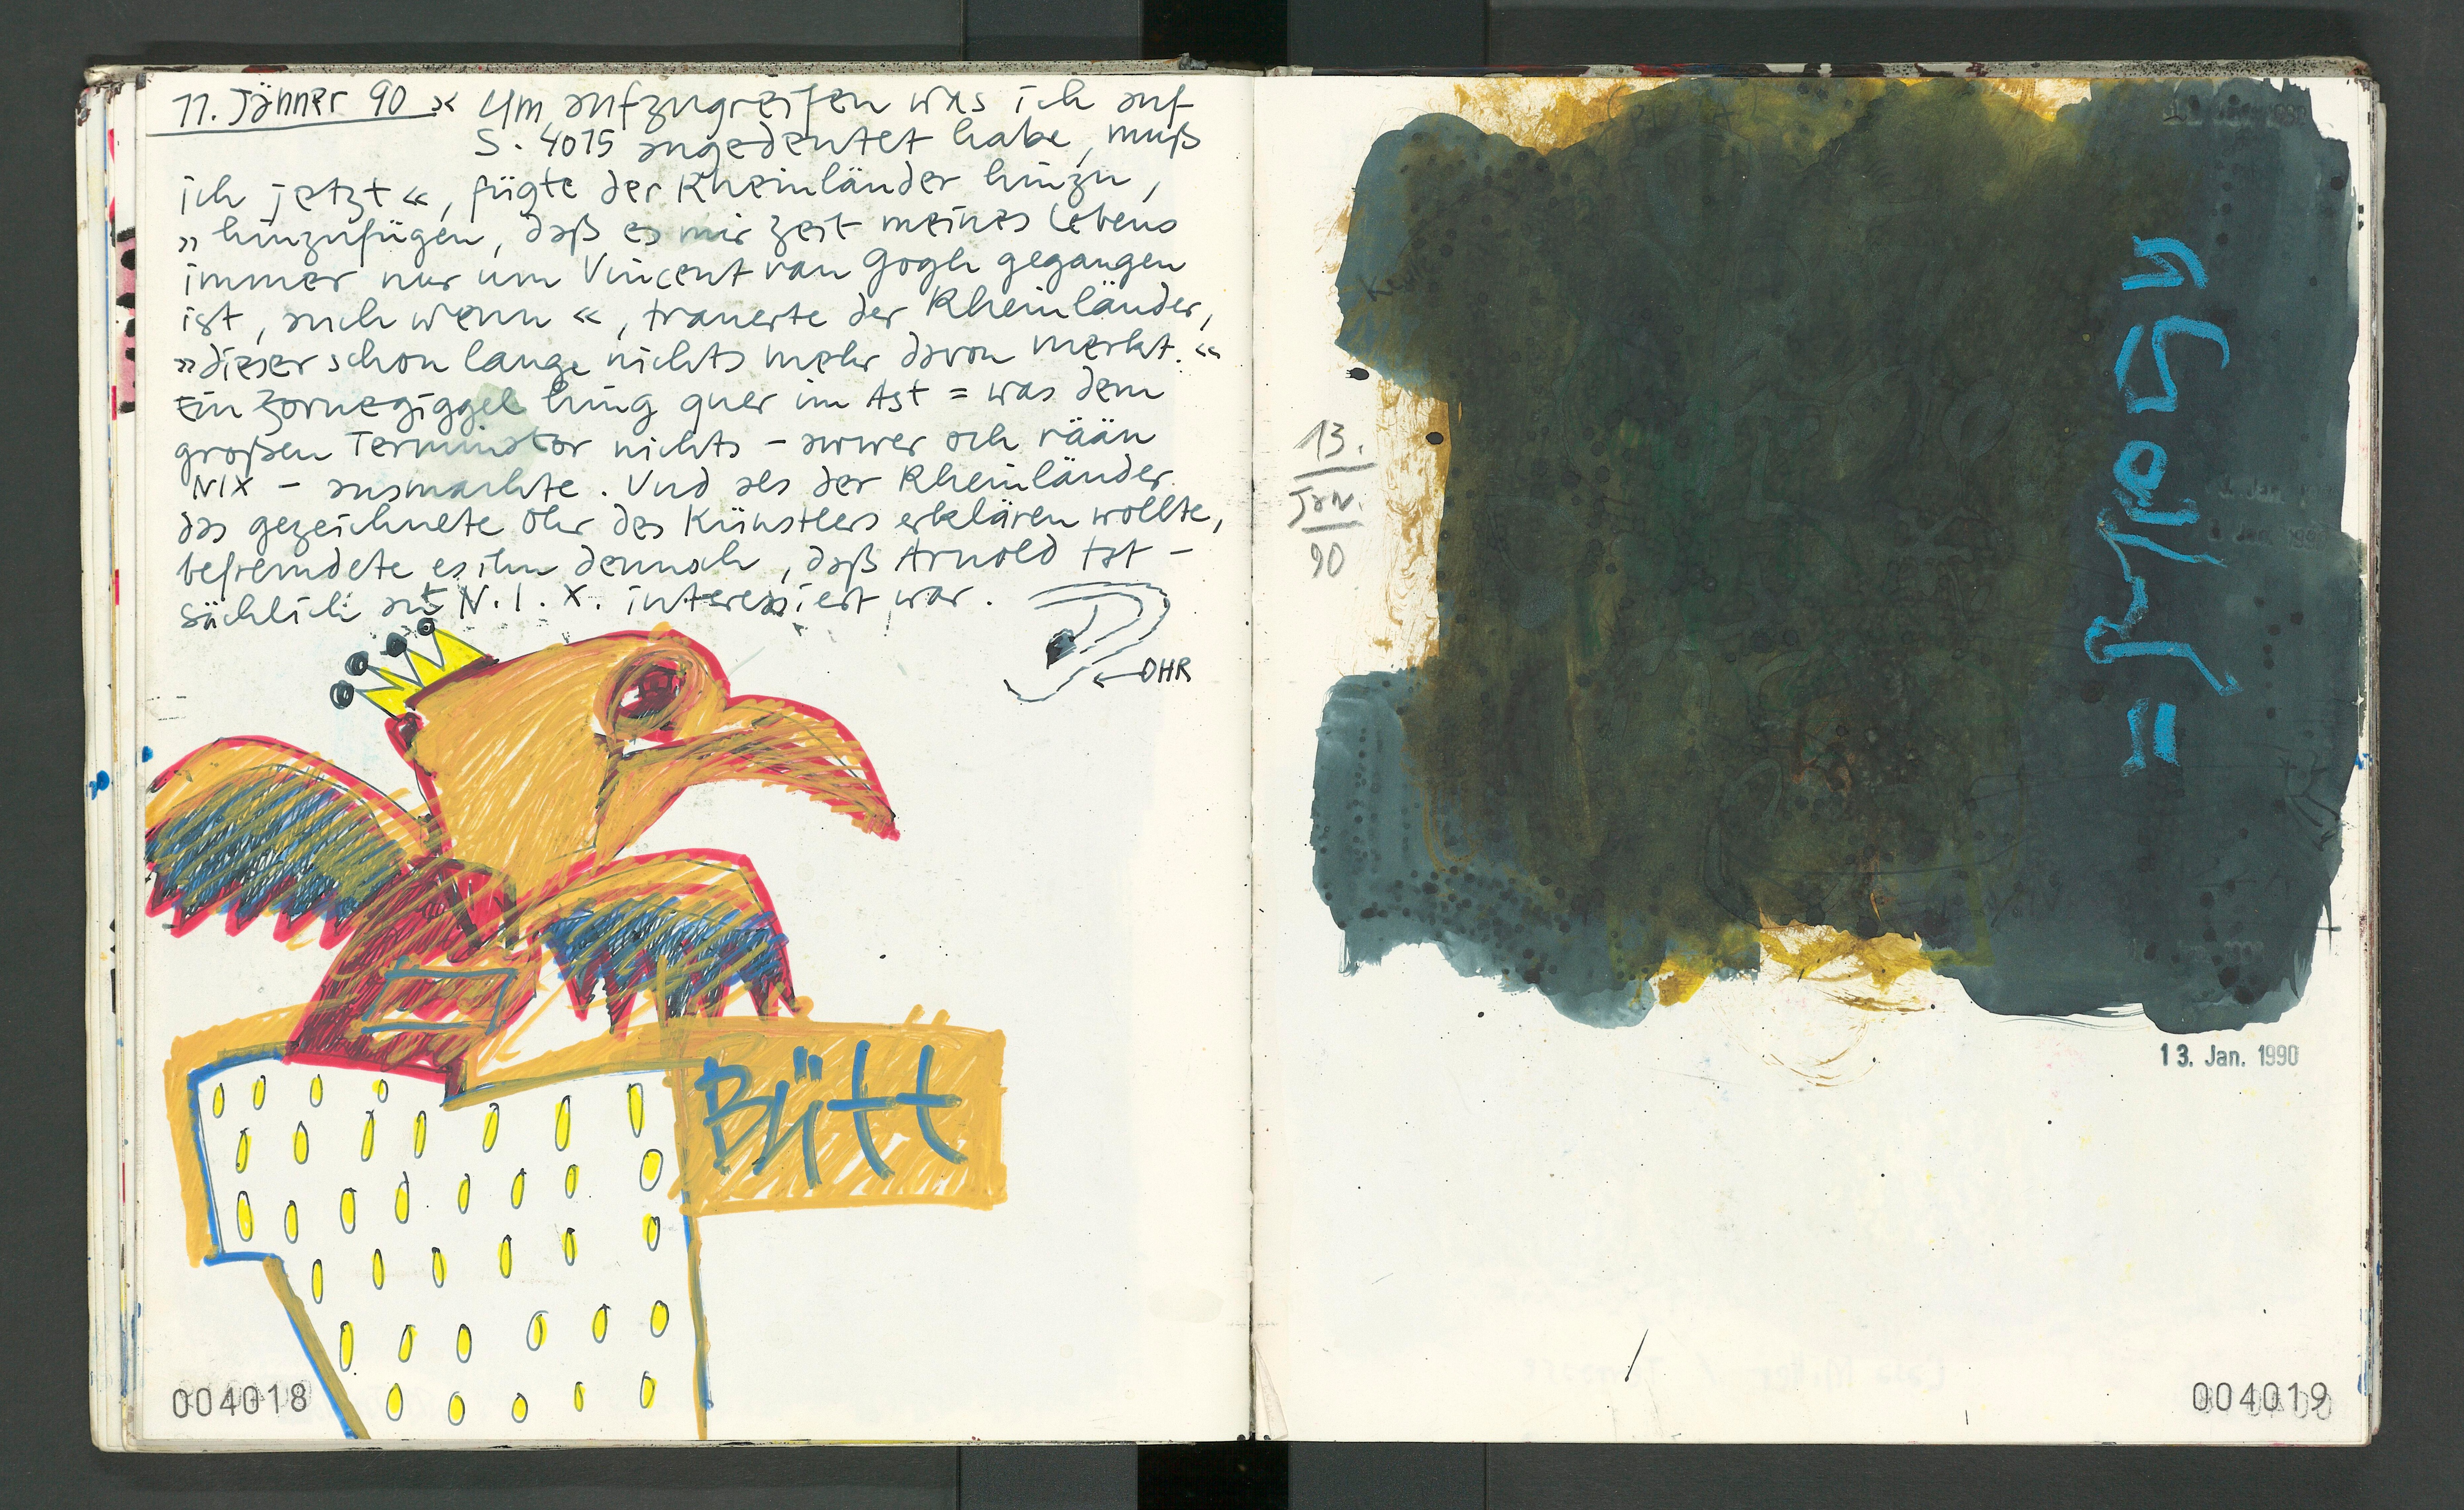 11. Jänner 90 »« Um aufzugreifen was ich auf
S. 4015 angedeutet habe, muß
ich jetzt«, fügte der Rheinländer hinzu,
»hinzufügen, daß es mir zeit meines Lebens
immer nur um Vincent van Gogh gegangen
ist, auch wenn«, trauerte der Rheinländer,
»dieser schon lange nichts mehr davon merkt.«
Ein Zornegiggel hing quer im Ast = was dem
großen Terminator nichts - awwer och rään
NIX - ausmachte. Und als der Rheinländer
das gezeichnete Ohr des Künstlers erklären wollte,
befremdete es ihn dennoch, daß Arnold tat-
sächlich an N.I.X. interessiert war.
OHR
Bütt
004018
13.
Jan.
90
13. Jan. 1990
004019